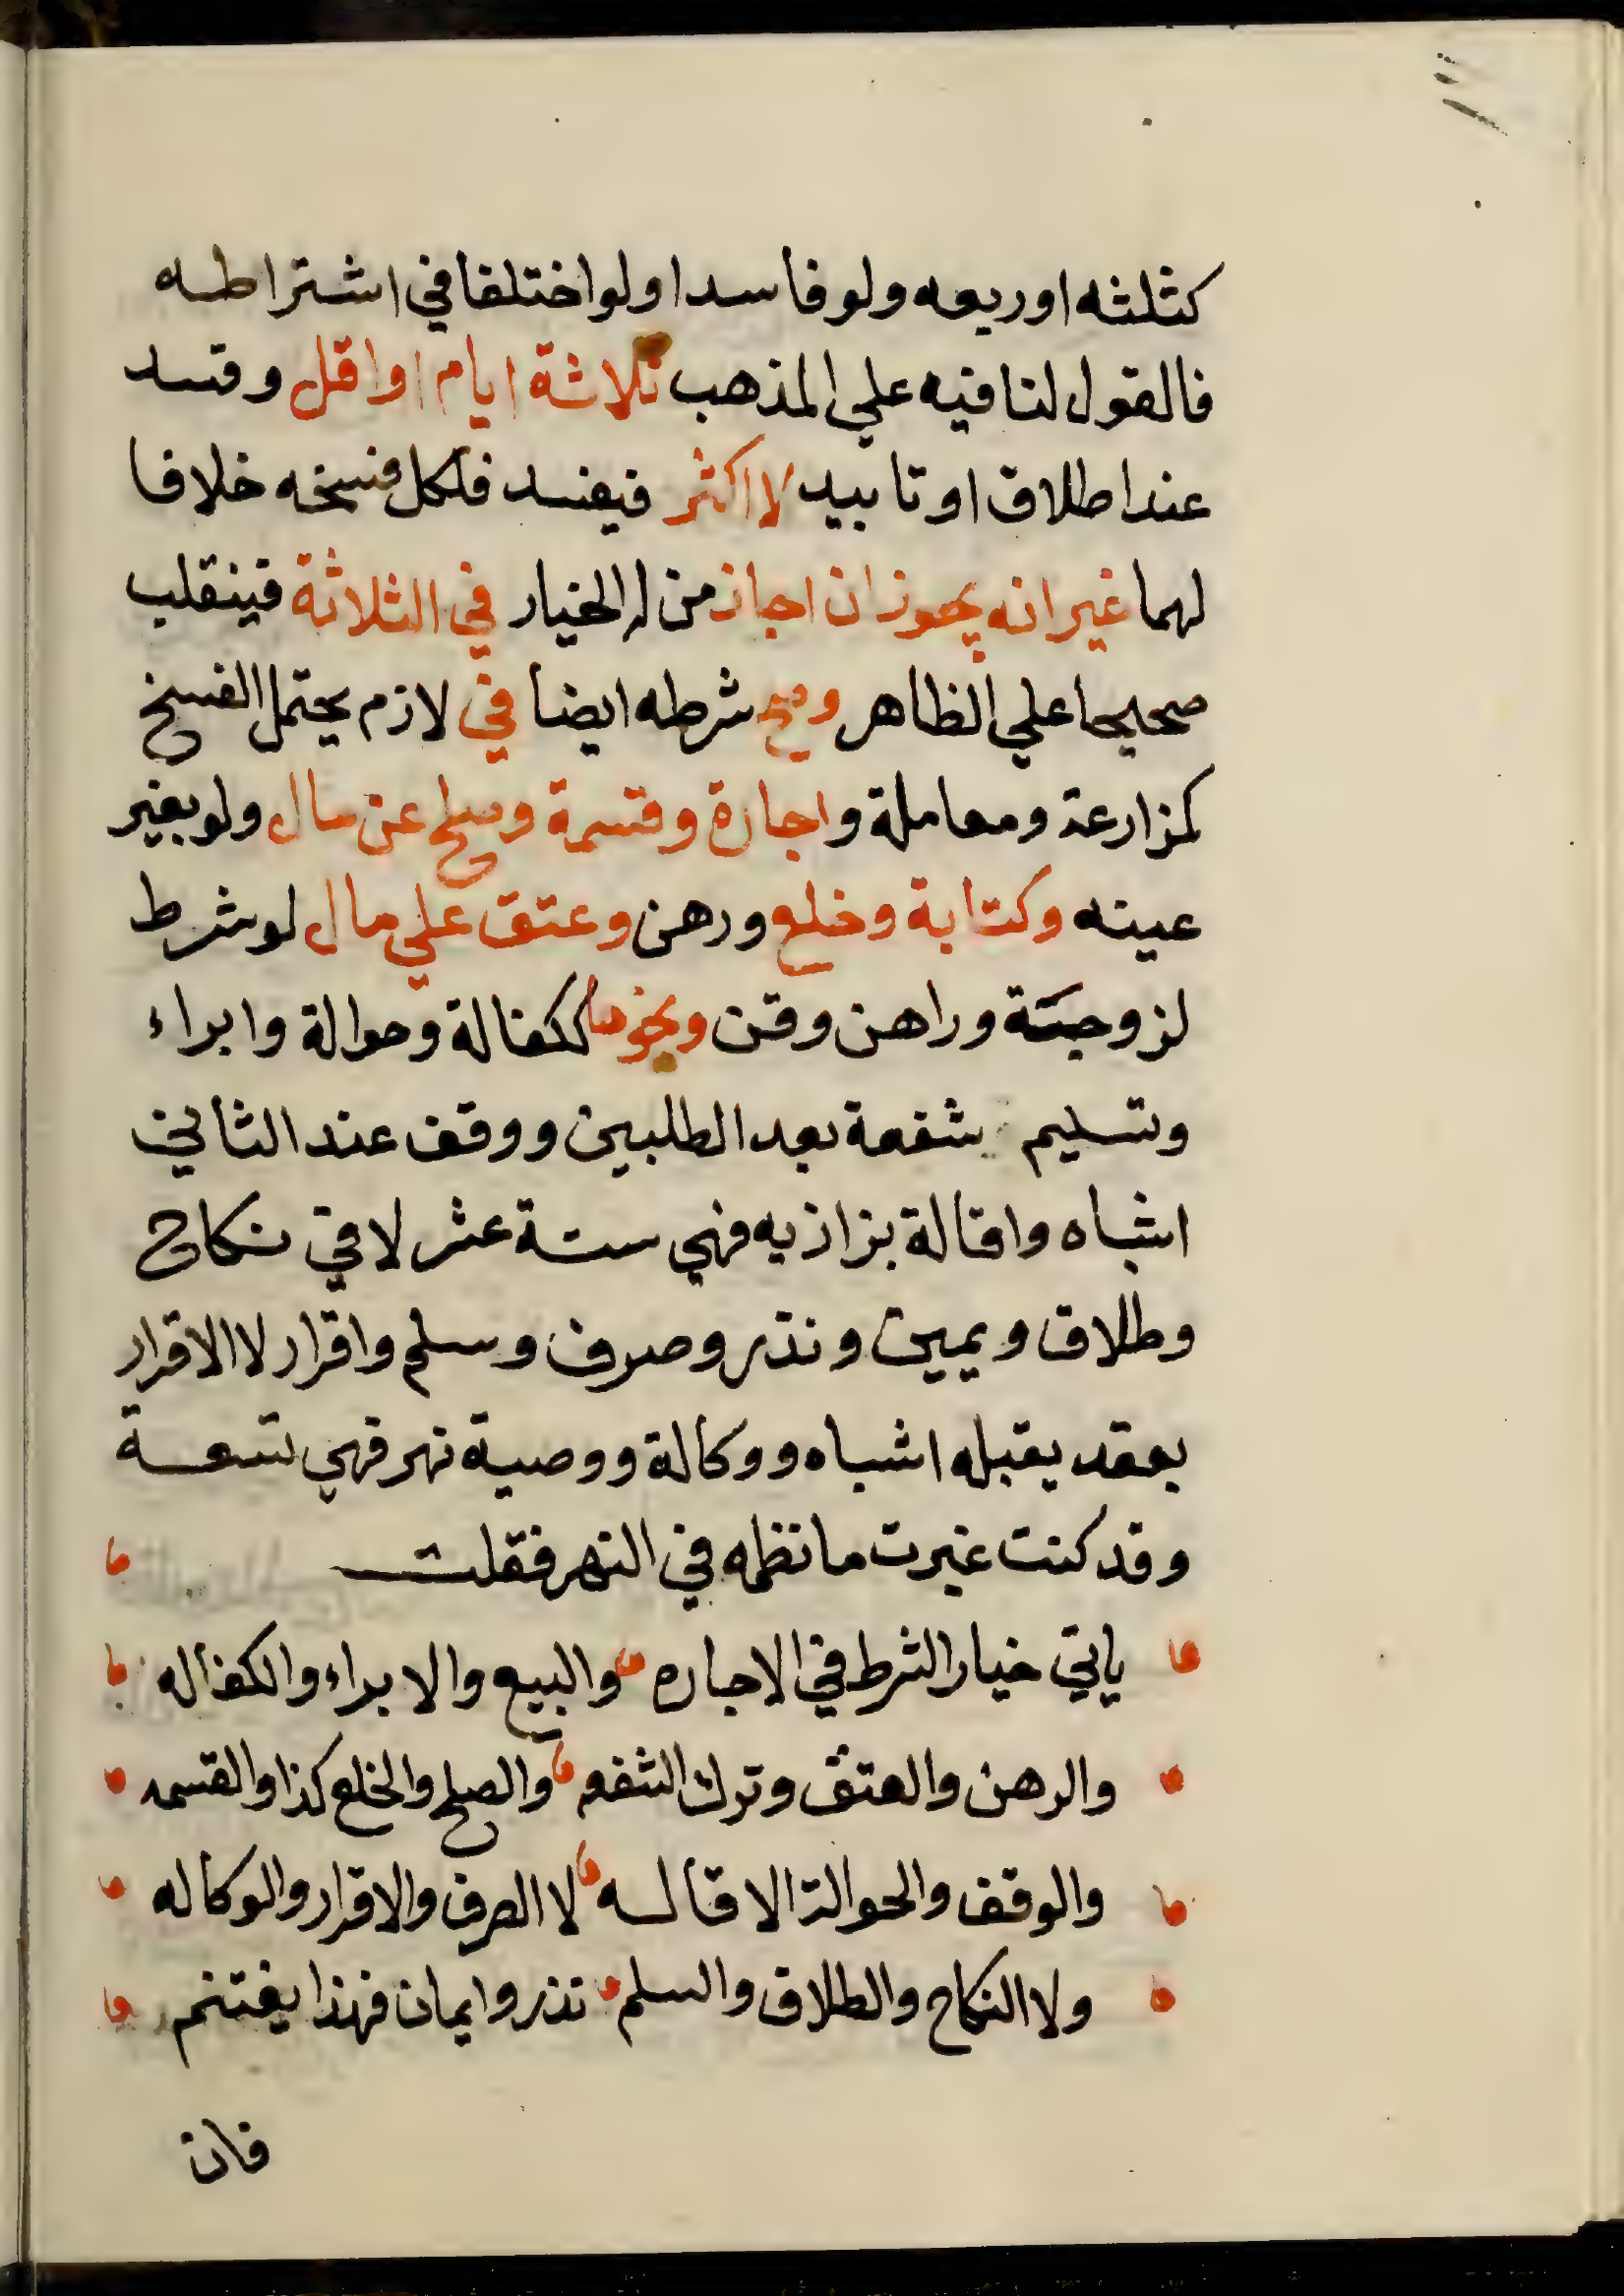 كثلثه او ربعه ولو فاسدا ولو اختلفا في اشتراطه
فالقول لنافيه علي المذهب ثلاثة ايام او اقل وفسد
عند اطلاق او تابيد لا اكثر فيفسد فلكل فسخه خلافا
لهما غير انه يجوز ان اجاز من له الخيار في الثلاثة فينقلب
صحيحا علي الظاهر وصح شرطه ايضا في لازم يحتمل الفسخ
كمزارعة ومعاملة واجارة وقسمة وصلح عن مال ولو بغير
عينه وكتابة وخلع ورهن وعتق علي مال لو شرط
لزوجة وراهن وقن ونحوها ككفالة وحوالة وابراء
وتسليم شفعة بعد الطلبين ووقف عند الثاني
اشباه واقالة بزازيه فهي ستة عشر لا في نكاح
وطلاق ويمين ونذر وصرف وسلم واقرار لا الاقرار
بعقد يقبله اشباه ووكالة ووصية نهر فهي تسعة
وقد كنت غيرت ما نظمه في النهر فقلت
ياتي خيار الشرط في الاجاره والبيع والابراء والكفاله
والرهن والعتق وترك الشفعه والصلح والخلع كذا والقسمه
والوقف والحوالة الاقاله لا الصرف والاقرار والوكاله
ولا النكاح والطلاق والسلم نذر وايمان فهذا يغتنم
فان